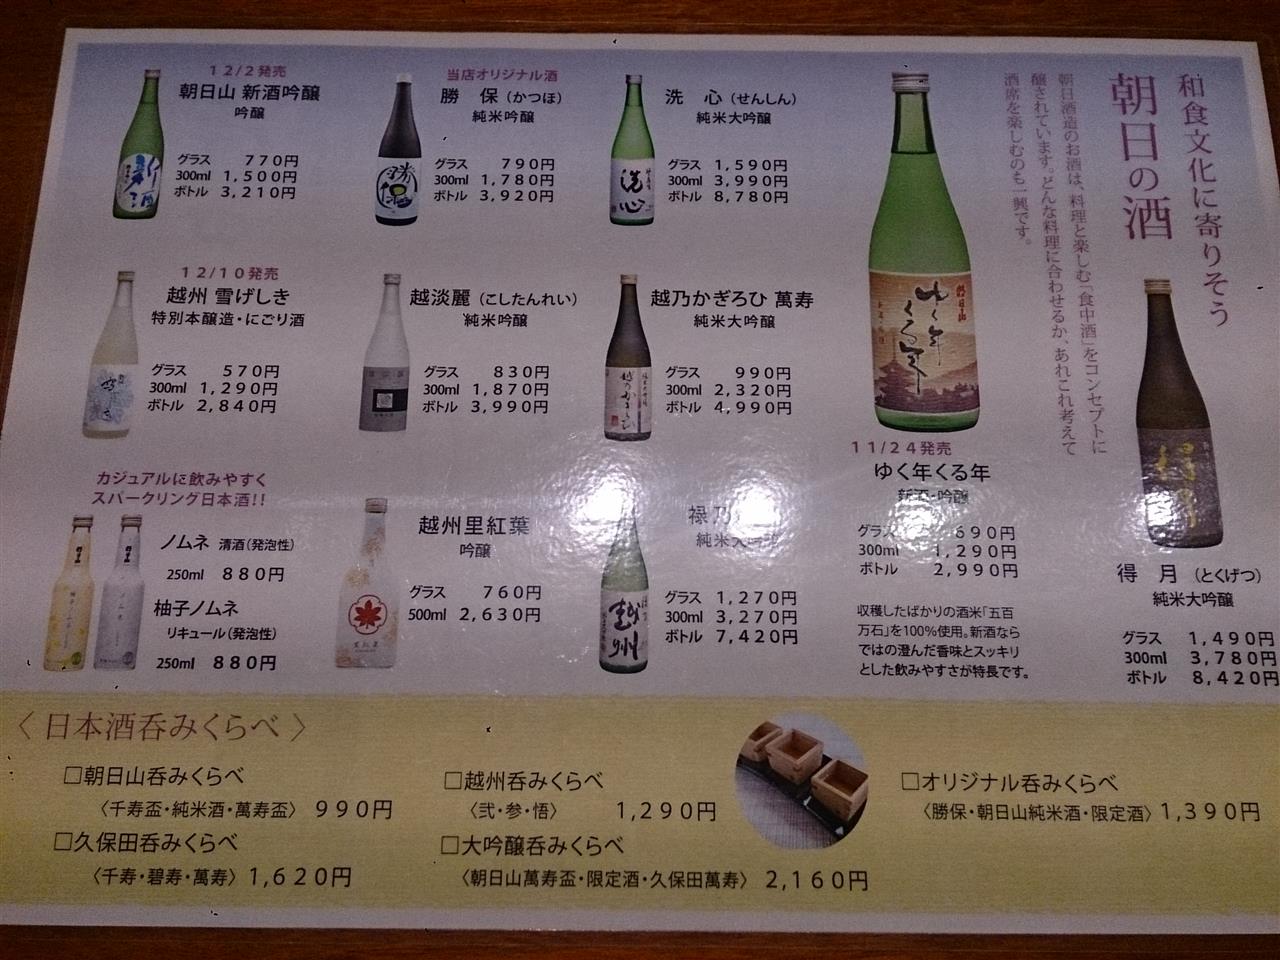 和食文化に寄りそう
朝日の酒
朝日酒造のお酒は、料理と楽しむ「食中酒」をコンセプトに
醸されています。どんな料理に合わせるか、あれこれ考えて
酒席を楽しむのも一興です。
12/2発売
朝日山 新酒吟醸
吟醸
グラス 770円
300ml 1,500円
ボトル 3,210円
新酒
当店オリジナル酒
勝 保（かつほ）
純米吟醸
グラス 790円
300ml 1,780円
ボトル 3,920円
勝保
洗 心（せんしん）
純米大吟醸
グラス 1,590円
300ml 3,990円
ボトル 8,780円
洗心
12/10発売
越州 雪げしき
特別本醸造・にごり酒
グラス 570円
300ml 1,290円
ボトル 2,840円
越淡麗（こしたんれい）
純米吟醸
グラス 830円
300ml 1,870円
ボトル 3,990円
越乃かぎろひ 萬寿
純米大吟醸
グラス 990円
300ml 2,320円
ボトル 4,990円
越乃かぎろひ
朝日山
ゆく年
くる年
11/24発売
ゆく年くる年
新酒・吟醸
グラス 690円
300ml 1,290円
ボトル 2,990円
収穫したばかりの酒米「五百
万石」を100%使用。新酒なら
ではの澄んだ香味とスッキリ
とした飲みやすさが特長です。
得月
得 月（とくげつ）
純米大吟醸
グラス 1,490円
300ml 3,780円
ボトル 8,420円
カジュアルに飲みやすく
スパークリング日本酒!!
ノムネ 清酒（発泡性）
250ml 880円
柚子ノムネ
リキュール（発泡性）
250ml 880円
越州里紅葉
吟醸
グラス 760円
500ml 2,630円
禄乃
純米大吟醸
グラス 1,270円
300ml 3,270円
ボトル 7,420円
越州
〈日本酒呑みくらべ〉
□朝日山呑みくらべ
〈千寿盃・純米酒・萬寿盃〉 990円
□久保田呑みくらべ
〈千寿・碧寿・萬寿〉 1,620円
□越州呑みくらべ
〈弐・参・悟〉 1,290円
□大吟醸呑みくらべ
〈朝日山萬寿盃・限定酒・久保田萬寿〉 2,160円
□オリジナル呑みくらべ
〈勝保・朝日山純米酒・限定酒〉 1,390円